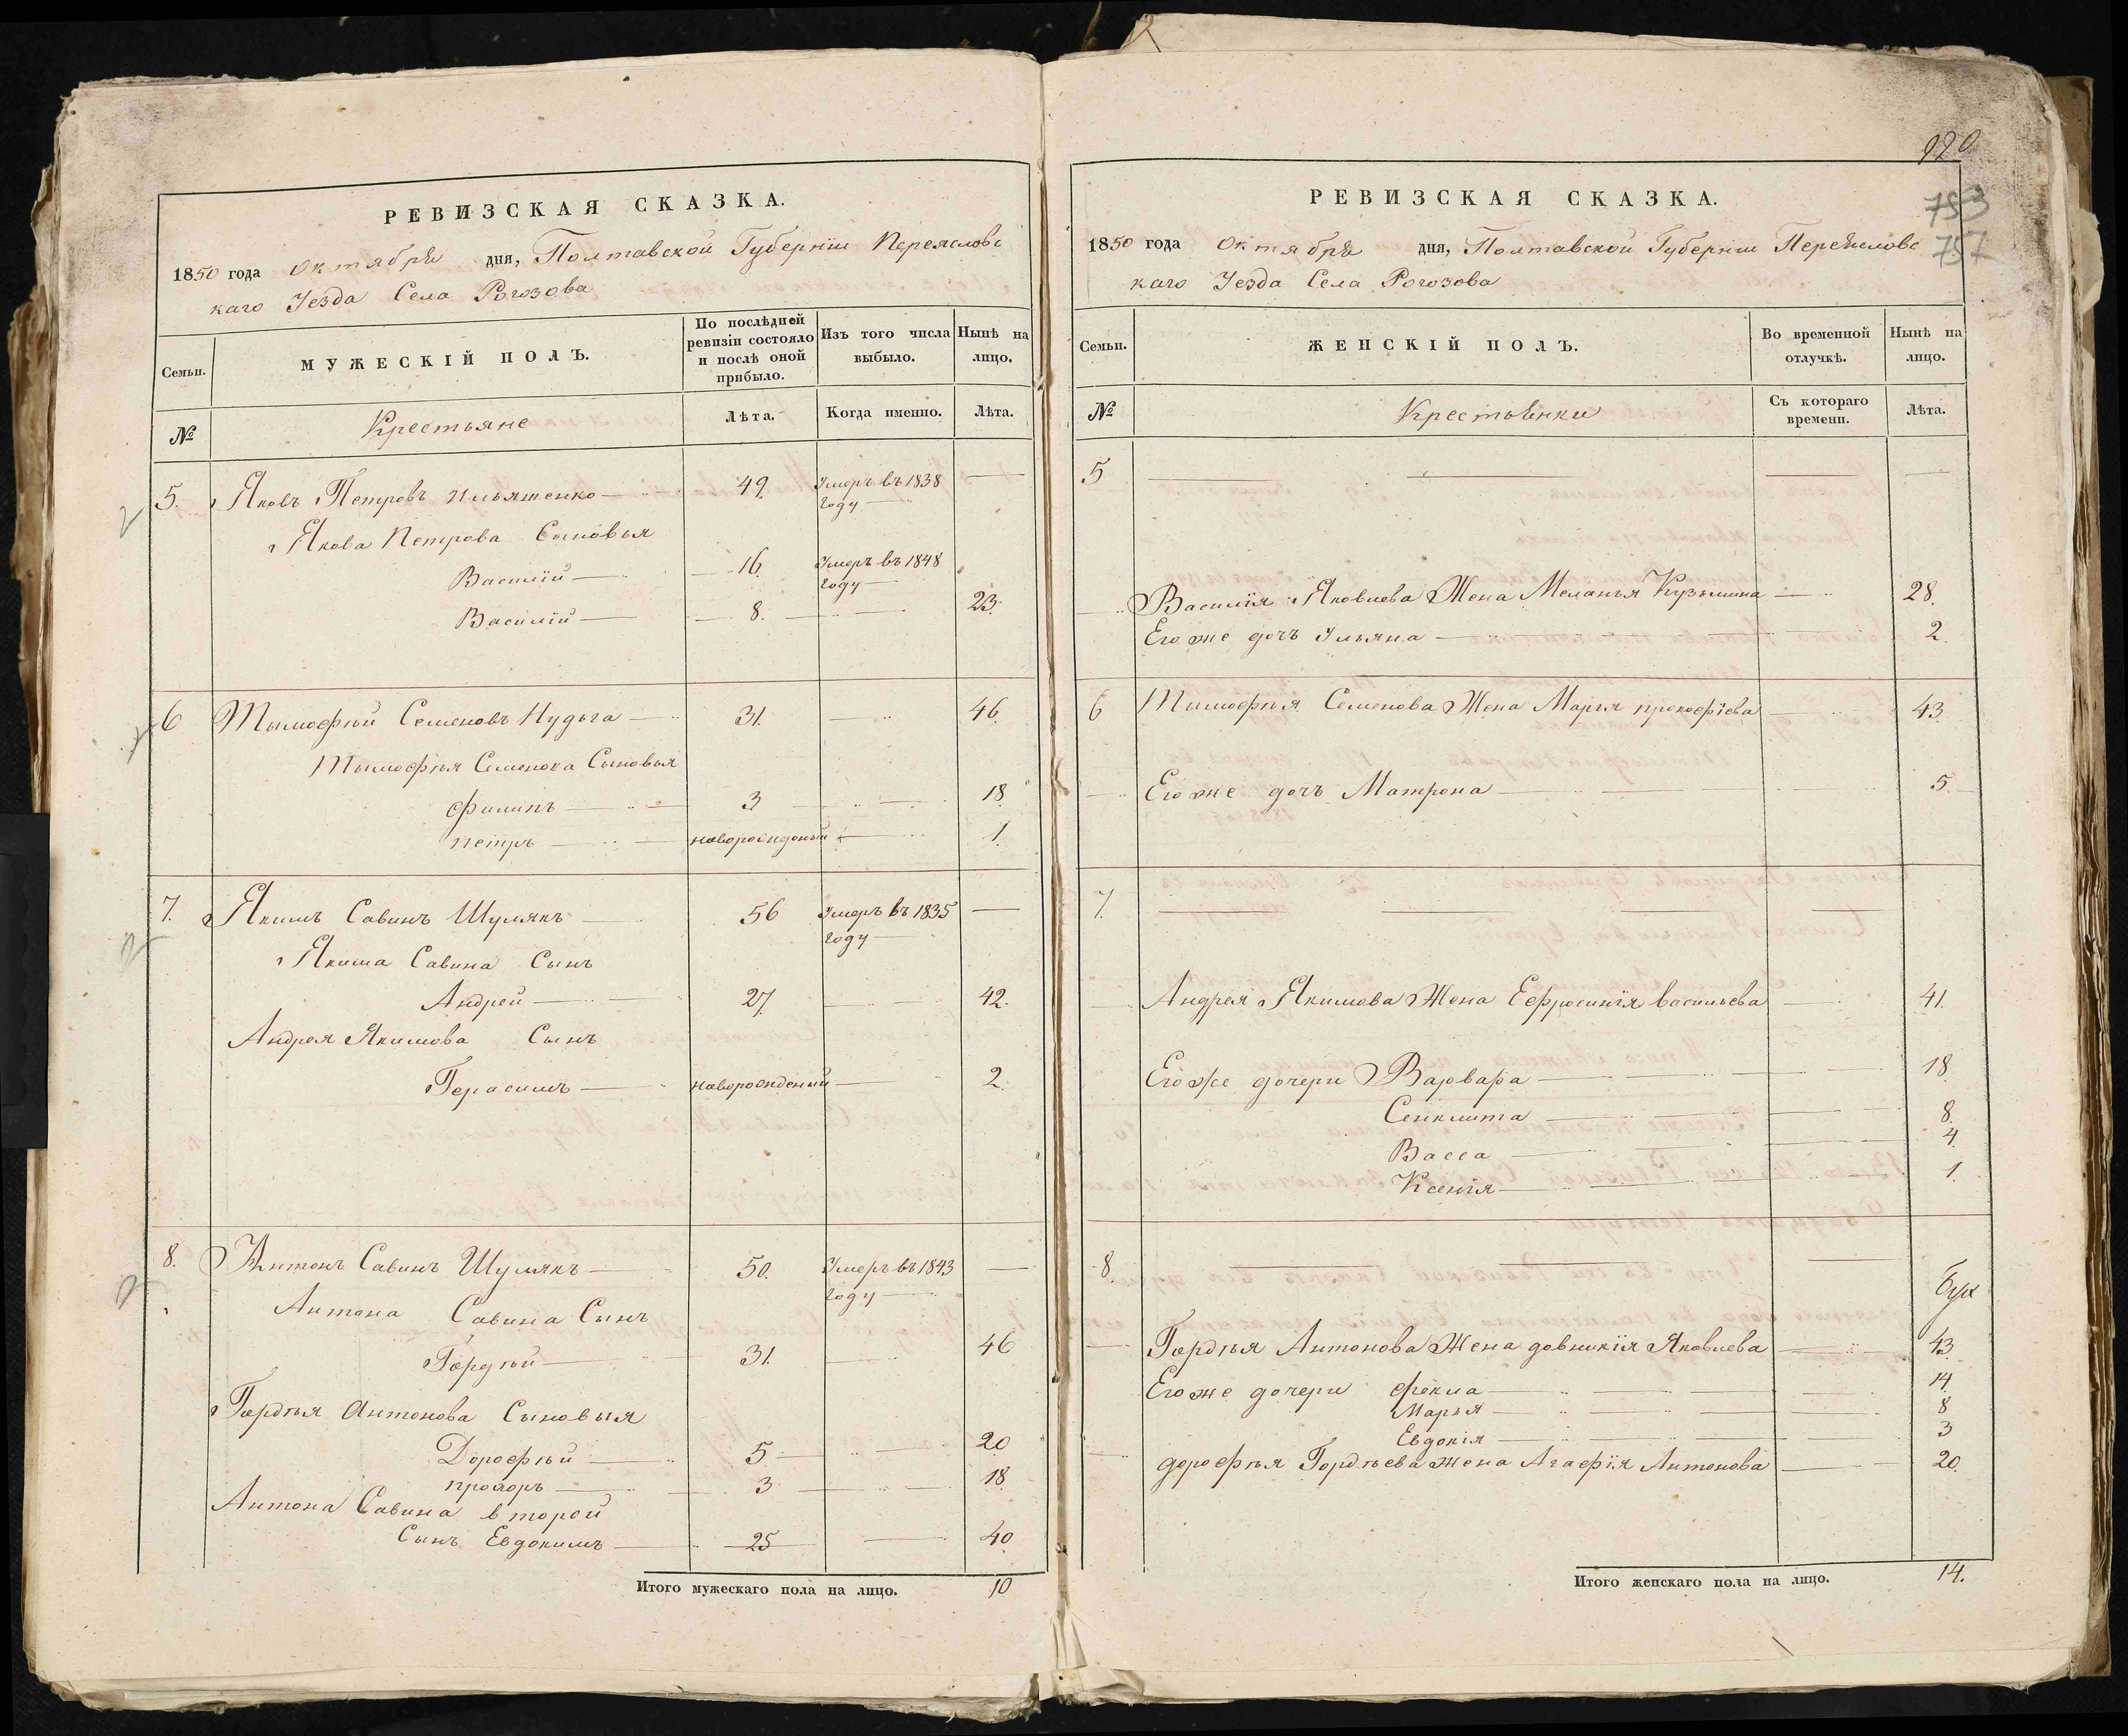 РЕВИЗСКАЯ СКАЗКА.
1850 года октября дня, Полтавской Губерніи Переяславс
каго Уезда Села Рогозова
Семьи.
МУЖЕСКІЙ ПОЛЪ.
По послѣдней ревизіи состояло и послѣ оной прибыло.
Изъ того числа выбыло.
Нынѣ на лицо.
№
Крестьяне
Лѣта.
Когда именно.
Лѣта.
5. Яковъ Петровъ Ильяшенко 49. Умеръ въ 1838 году
Якова Петрова Сыновья
Василій 16. Умеръ въ 1848 году
Василій 8. 23.
6 Тымофѣй Семеновъ Нудьга 31. 46.
Тымофѣя Семенова Сыновья
Филипъ 3 18
петръ новорожденый 1.
7. Якимъ Савинъ Шулякъ 56 Умеръ въ 1835 году
Якима Савина Сынъ
Андрей 27. 42.
Андрея Якимова Сынъ
Герасимъ новорожденый 2.
8. Антонъ Савинъ Шулякъ 50. Умеръ въ 1843 году
Антона Савина Сынъ
Гордѣй 31. 46
Гордѣя Антонова Сыновья
Дорофѣй 5 20
прохоръ 3 18.
Антона Савина второй
Сынъ Евдокимъ 25 40.
Итого мужескаго пола на лицо. 10
920
753
757
РЕВИЗСКАЯ СКАЗКА.
1850 года октября дня, Полтавской Губерніи Переяславс
каго Уезда Села Рогозова
Семьи.
ЖЕНСКІЙ ПОЛЪ.
Во временной отлучкѣ.
Нынѣ на лицо.
№
Крестьянки
Съ котораго времени.
Лѣта.
5
Василія Яковлева Жена Меланья Кузьмина 28.
Его же дочь Ульяна 2.
6 Тимофѣя Семенова Жена Марья прокофіева 43.
Его же дочь Матрона 5.
7.
Андрея Якимова Жена Ефросинія васильева 41.
Его же дочери Варвара 18.
Сенклита 8.
Васса 4.
Ксенія 1.
8.
Гордѣя Антонова Жена довникія Яковлева 43.
Его же дочери фекла 14.
Марья 8
Евдокія 3
дорофѣя Гордѣева жена Агафія Антонова 20.
Итого женскаго пола на лицо. 14.